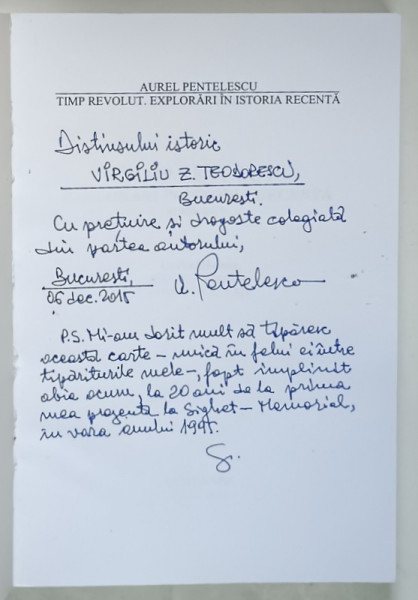 AUREL PENTELESCU
TIMP REVOLUT. EXPLORĂRI ÎN ISTORIA RECENTĂ
Distinsului istoric
VIRGILIU Z. TEODORESCU,
București.
Cu prețuire și dragoste colegială
din partea autorului,
București,
06 dec. 2015
A. Pentelescu
P.S. Mi-am dorit mult să tipăresc
această carte – unică în felul ei între
tipăriturile mele –, fapt împlinit
abia acum, la 20 ani de la prima
mea prezență la Sighet – Memorial,
în vara anului 1995.